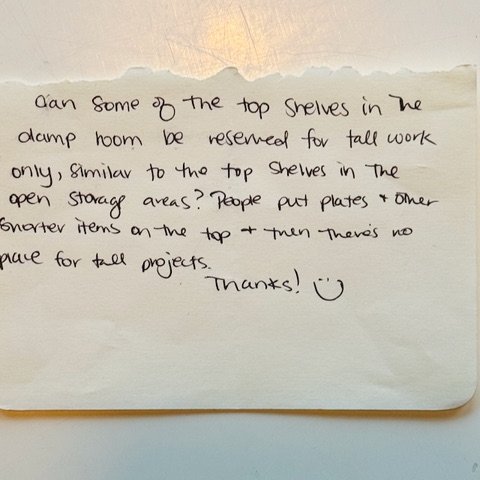 Can some of the top shelves in the
damp room be reserved for tall work
only, similar to the top shelves in the
open storage areas? People put plates + other
shorter items on the top + then there's no
place for tall projects.
Thanks! :)